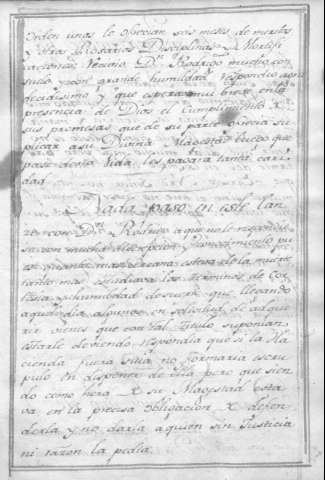 Orden unas le ofrecian seis meses de meritos
y otras Rosarios Disciplinas y Mortifi
caciones Vecino Dn. Rodrigo mucho con
suelo y con grande humildad respondio agra
decidisimo y que esperava mui breve en la
presencia de Dios el Cumplimiento de
sus promesas que de su parte ofrecia su
plicar a su Divina Magestad luego que
pase desta Vida les pagara tanta cari
dad
Nada paso en este lan
ze con Dn. Rodrigo a que no le respondie
se con mucha discrepcion y conocimiento pu
es quanto mas cercano estava de la muerte
tanto mas estudiava los terminos de Cor
tesia y humildad desuerte que llegando
aquel dia algunos en solicitud de adque
rir vienes que con tal titulo suponian
estarle deviendo respondia que si la Ha
cienda fuera suia no formaria escru
pulo en disponer de ella pero que sien
do como hera de su Magestad esta
va en la precisa obligacion de defen
derla y no darla a quien sin Justicia
ni razon la pedia.